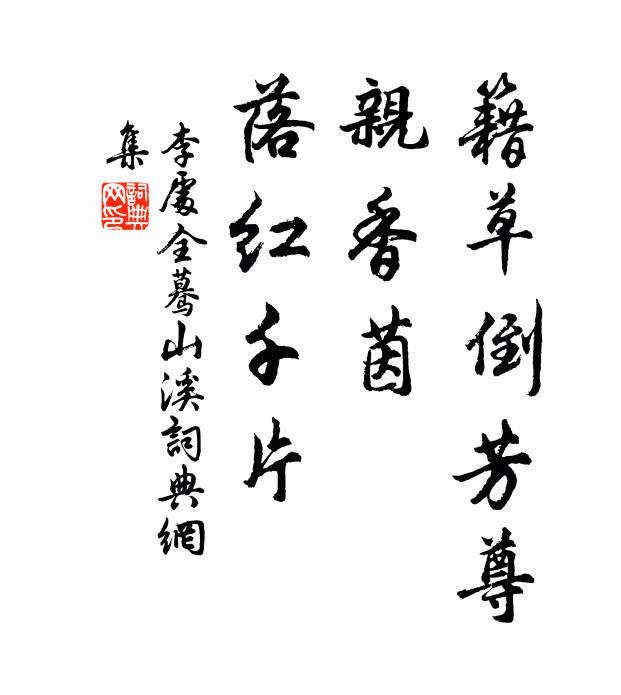 籍草倒芳尊
親香茵
落紅千片
李處全驀山溪詞典網
集
詞典网印